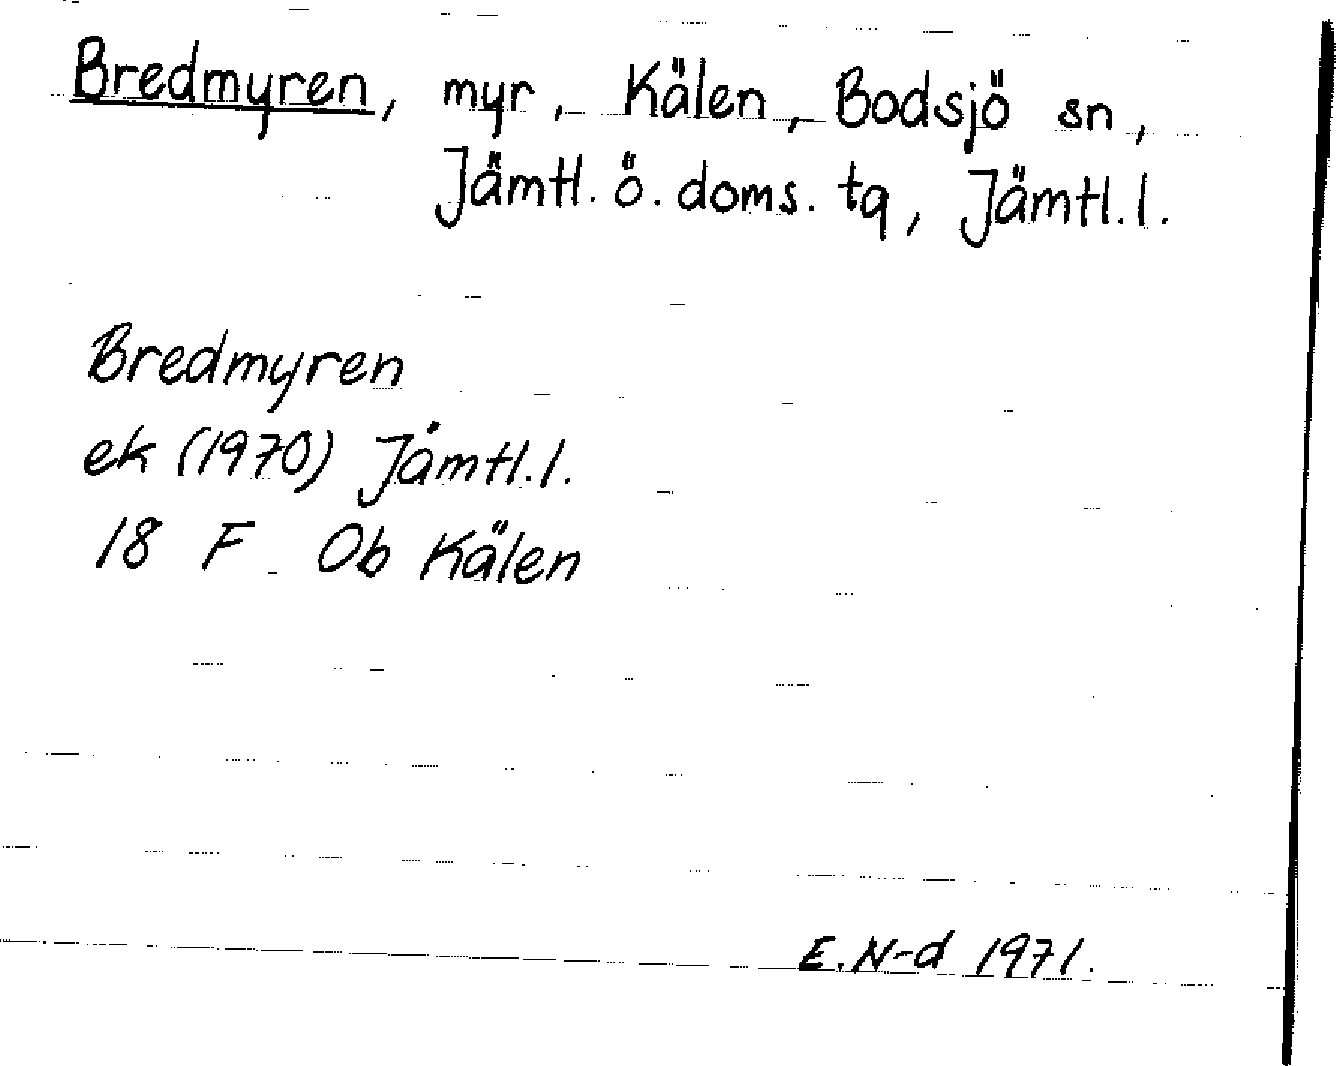 Bredmyren, myr, Kälen, Bodsjö sn,
Jämtl. ö. doms. tq, Jämtl. l.
Bredmyren
ek (1970) Jämtl. l.
18 F Ob Kälen
E. N-d 1971.